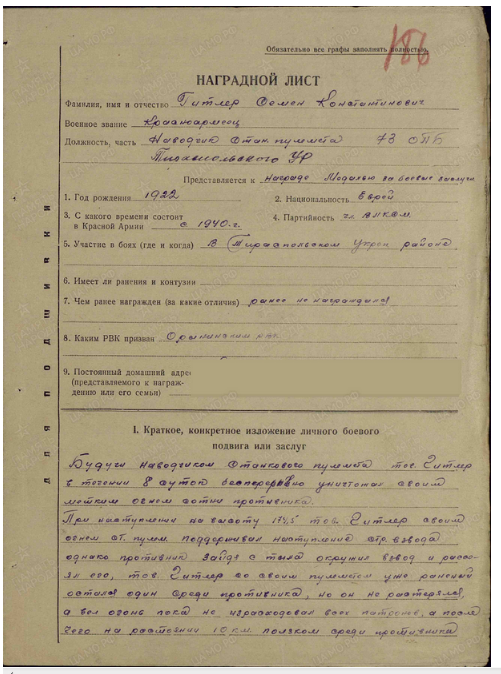 186
Обязательно все графы заполнять полностью.
НАГРАДНОЙ ЛИСТ
Фамилия, имя и отчество Гитлер Семен Константинович
Военное звание Красноармеец
Должность, часть Наводчик Стан пулмета 73 ОПБ
Тираспольского УР
Представляется к награде Медалью за боевые заслуги
1. Год рождения 1922
2. Национальность Еврей
3. С какого времени состоит
в Красной Армии с 1940 г.
4. Партийность чл ВЛКСМ.
5. Участие в боях (где и когда) В Тираспольском Укреп районе
6. Имеет ли ранения и контузии
7. Чем ранее награжден (за какие отличия) ранее не награждался
8. Каким РВК призван Орынинским
9. Постоянный домашний адрес
(представляемого к награж-
дению или его семьи)
ДЛЯ ПОДШИВКИ
I. Краткое, конкретное изложение личного боевого
подвига или заслуг
Будучи наводчиком Станкового пулмета тов. Гитлер
в течении 8 суток беспрерывно уничтожал своим
метким огнем сотни противника.
При наступлении на высоту 174,5 тов. Гитлер своим
огнем ст. пулм. поддерживал наступление стр. взвода
однако противник зайдя с тыла окружил взвод и рассе-
ял его, тов. Гитлер со своим пулметом уже ранений
остался один среди противника, но он не растерялся,
а вел огонь пока не израсходовал всех патронов, а после
чего на расстоянии 10 км. ползком среди противника